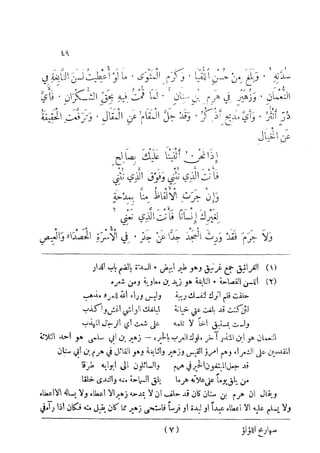 ٤٩
سدته ١ . وبلغ من حسن اللقيا . وكرم المثوى . ما لو أعطيت لسن النابغة في
النعمان . وزهير في هرم بن سنان ٢ . لما قمت فيه بحق الشكران . فأي
در أنثر . وأي مديح أذكر . وقد جل المقام عن المقال . وترفعت الحقيقة
عن الخيال
إذا نحن أثنينا عليك بصالح
فأنت الذي نثني وفوق الذي نثني
وإن جرت الألفاظ منا بمدحة
لغيرك إنسانا فأنت الذي نعني
ولا جرم فقد ورث المجد جدا عن جد . في الأسرة الحصداء والعيص
(١) الغرانيق جمع غرنيق وهو طير أبيض . السدة بالضم باب الدار
(٢) اللسن الفصاحة . النابغة هو زيد بن معاوية ومن شعره
حلفت فلم أترك لنفسك ريبة وليس وراء الله للمرء مذهب
لئن كنت قد بلغت عني خيانة لمبلغك الواشي أغش وأكذب
ولست بمستبق أخا لا تلمه على شعث أي الرجال المهذب
النعمان هو ابن المنذر آخر ملوك العرب بالحيرة . زهير بن أبي سلمى هو أحد الثلاثة
المقدمين على الشعراء وهم امرؤ القيس وزهير والنابغة وهو القائل في هرم بن أبي سنان
قد جعل المبتغون الخير في هرم والسائلون إلى أبوابه طرقا
من يلق يوما على علاته هرما يلق السماحة منه والندى خلقا
ويقال إن هرم بن سنان كان قد حلف أن لا يمدحه زهير إلا أعطاه ولا يسأله إلا أعطاه
ولا يسلم عليه إلا أعطاه عبدا أو وليدة أو فرسا فاستحى زهير مما كان يقبل منه فكان إذا رآه في
صهاريج اللؤلؤ (٧)